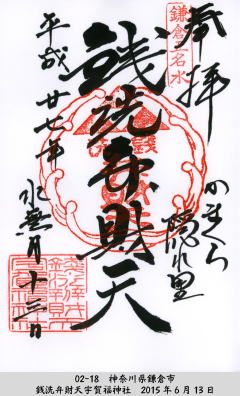 奉拝
鎌倉五名水
かまくら
隠れ里
銭洗弁財天
平成廿七年
水無月十三日
02-18 神奈川県鎌倉市
銭洗弁財天宇賀福神社 2015年6月13日